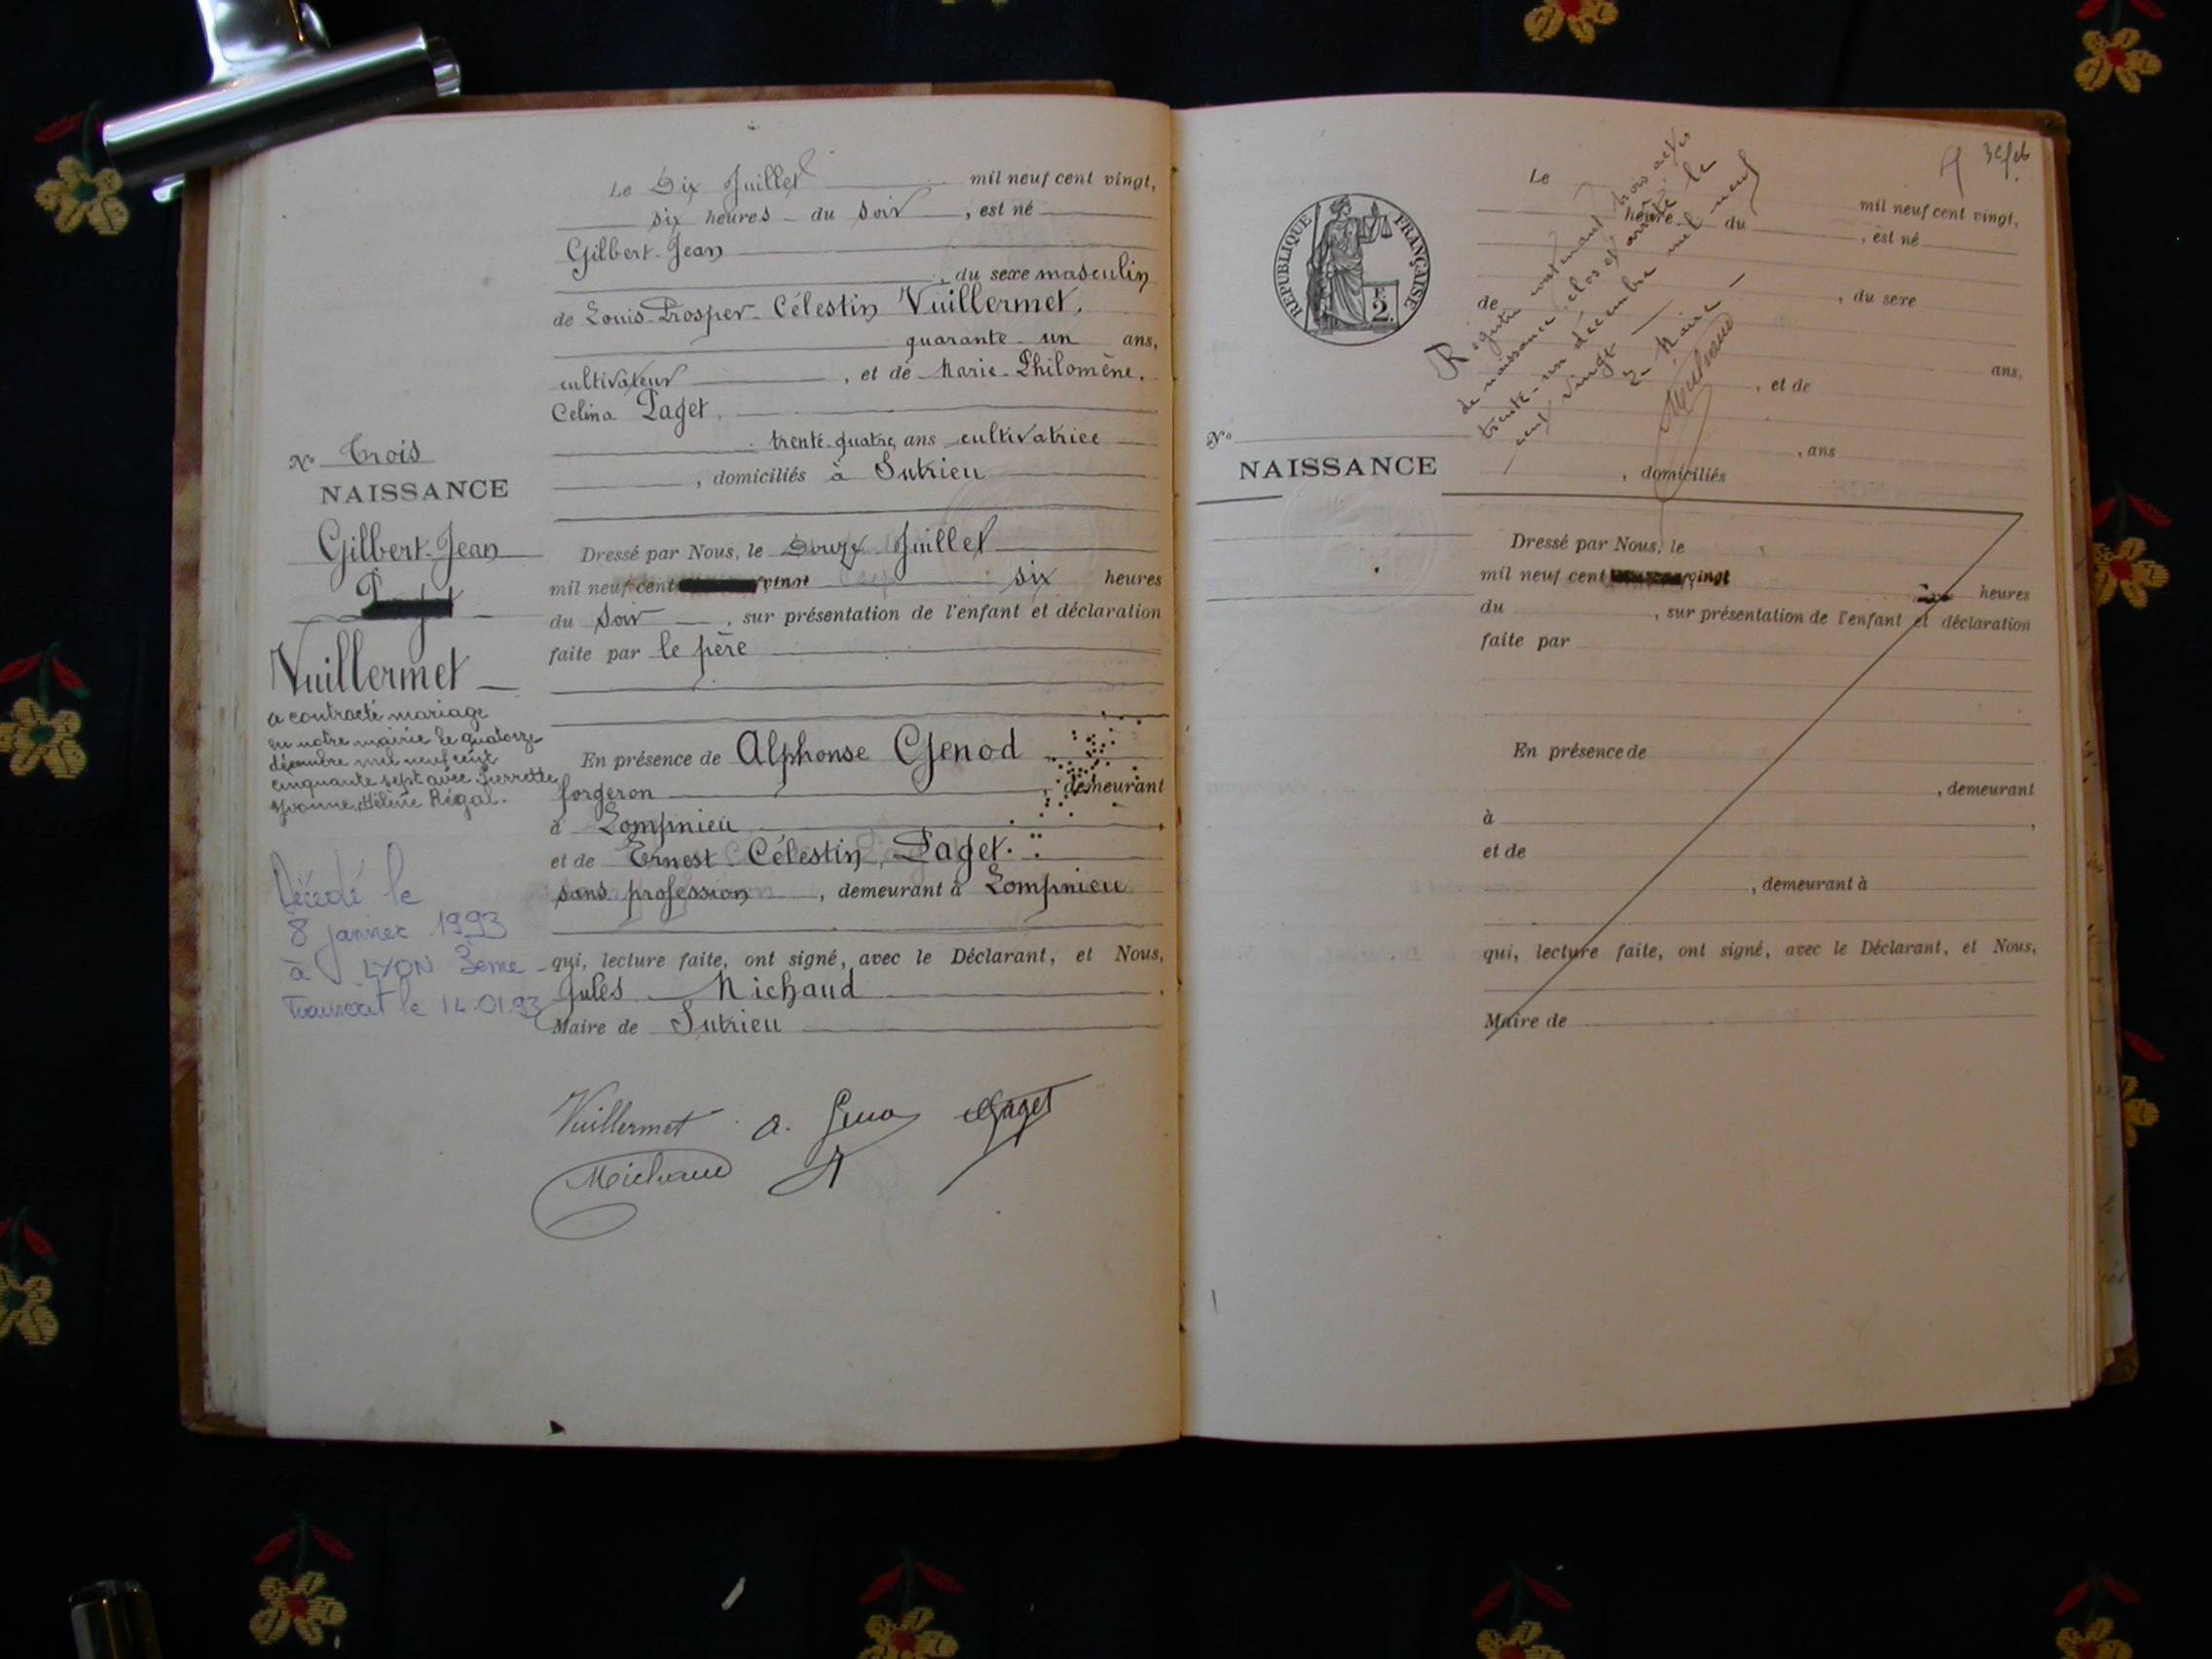 Le Dix Juillet mil neuf cent vingt,
six heures du soir, est né
Gilbert-Jean
, du sexe masculin
de Louis-Prosper-Célestin Vuillermet,
quarante-un ans,
cultivateur, et de Marie-Philomène,
Celina Paget,
trente-quatre ans cultivatrice
, domiciliés à Sutrieu
No Trois
NAISSANCE
Gilbert-Jean
Vuillermet
a contracté mariage
en notre mairie le quatorze
décembre mil neuf cent
cinquante sept avec Pierrette,
Yvonne, Hélène Régal.
Décédé le
8 janvier 1993
à LYON 3ème
Transcrit le 14.01.93
Dressé par Nous, le Douze Juillet
mil neuf cent vingt six heures
du soir, sur présentation de l'enfant et déclaration
faite par le père
En présence de Alphonse Genod
forgeron, demeurant
à Lompnieu,
et de Ernest Célestin, Paget.
sans profession, demeurant à Lompnieu
qui, lecture faite, ont signé, avec le Déclarant, et Nous,
Jules Michaud,
Maire de Sutrieu
Vuillermet a. Geno Paget
Michaud
REPUBLIQUE FRANÇAISE
2
Le mil neuf cent vingt,
heure du, est né
, du sexe
de
ans,
, et de
, ans
, domiciliés
Registre contenant trois actes
de naissance, clos et arrêté le
trente-un décembre mil neuf
cent vingt
Le Maire
Michaud
No
NAISSANCE
Dressé par Nous, le
mil neuf cent vingt heures
du, sur présentation de l'enfant et déclaration
faite par
En présence de
, demeurant
à,
et de
, demeurant à
qui, lecture faite, ont signé, avec le Déclarant, et Nous,
Maire de